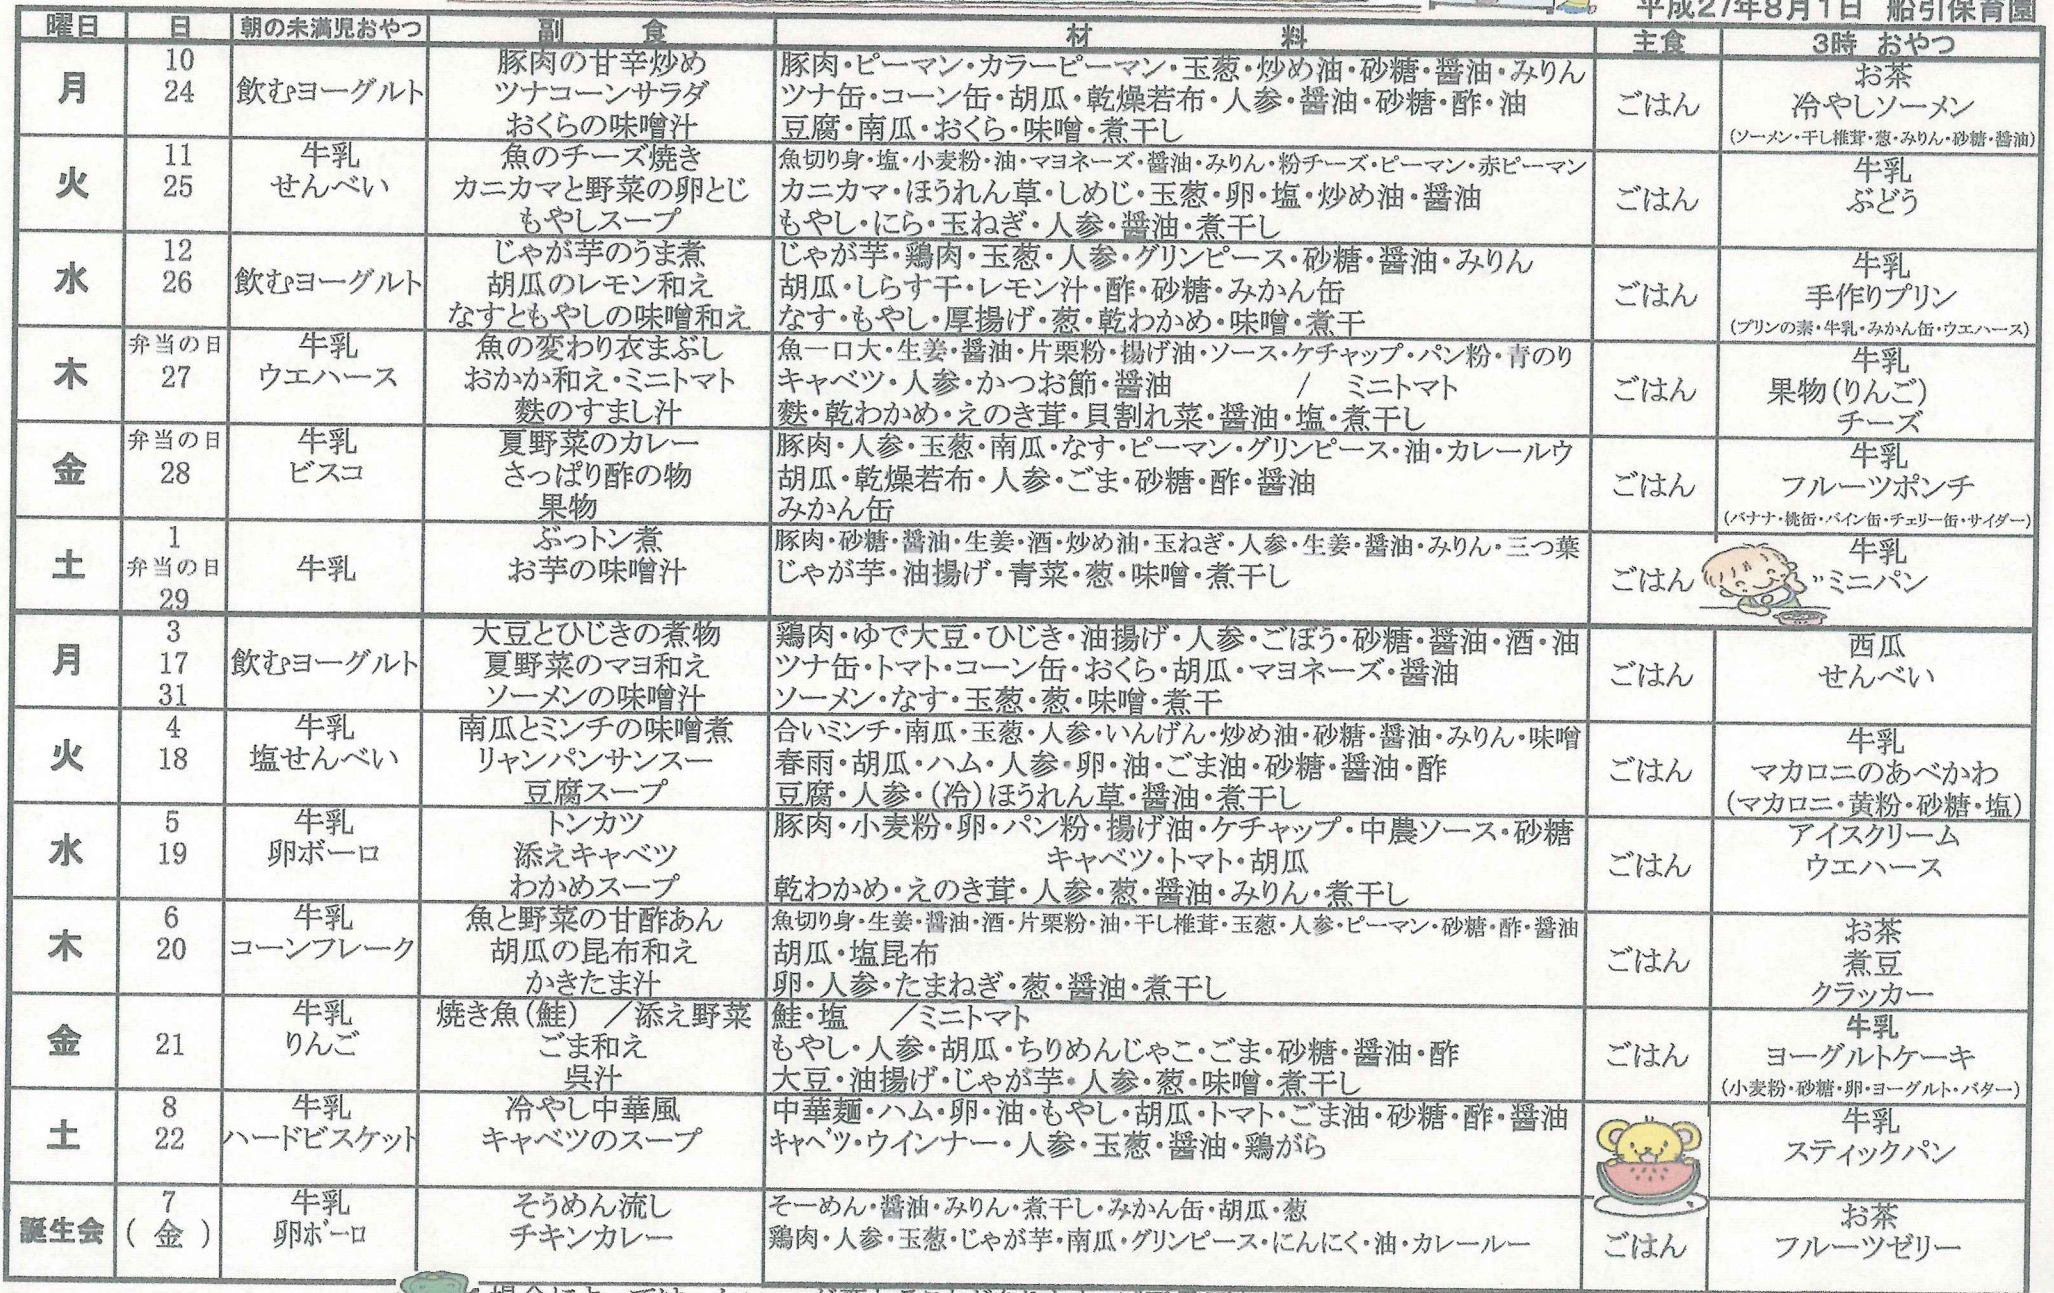 平成27年8月1日 船引保育園
曜日 日 朝の未満児おやつ 副 食 材 料 主食 3時 おやつ
月
10
24
飲むヨーグルト
豚肉の甘辛炒め
ツナコーンサラダ
おくらの味噌汁
豚肉・ピーマン・カラーピーマン・玉葱・炒め油・砂糖・醤油・みりん
ツナ缶・コーン缶・胡瓜・乾燥若布・人参・醤油・砂糖・酢・油
豆腐・南瓜・おくら・味噌・煮干し
ごはん
お茶
冷やしソーメン
(ソーメン・干し椎茸・葱・みりん・砂糖・醤油)
火
11
25
牛乳
せんべい
魚のチーズ焼き
カニカマと野菜の卵とじ
もやしスープ
魚切り身・塩・小麦粉・油・マヨネーズ・醤油・みりん・粉チーズ・ピーマン・赤ピーマン
カニカマ・ほうれん草・しめじ・玉葱・卵・塩・炒め油・醤油
もやし・にら・玉ねぎ・人参・醤油・煮干し
ごはん
牛乳
ぶどう
水
12
26
飲むヨーグルト
じゃが芋のうま煮
胡瓜のレモン和え
なすともやしの味噌和え
じゃが芋・鶏肉・玉葱・人参・グリンピース・砂糖・醤油・みりん
胡瓜・しらす干・レモン汁・酢・砂糖・みかん缶
なす・もやし・厚揚げ・葱・乾わかめ・味噌・煮干
ごはん
牛乳
手作りプリン
(プリンの素・牛乳・みかん缶・ウエハース)
木
弁当の日
27
牛乳
ウエハース
魚の変わり衣まぶし
おかか和え・ミニトマト
麩のすまし汁
魚一口大・生姜・醤油・片栗粉・揚げ油・ソース・ケチャップ・パン粉・青のり
キャベツ・人参・かつお節・醤油 / ミニトマト
麩・乾わかめ・えのき茸・貝割れ菜・醤油・塩・煮干し
ごはん
牛乳
果物(りんご)
チーズ
金
弁当の日
28
牛乳
ビスコ
夏野菜のカレー
さっぱり酢の物
果物
豚肉・人参・玉葱・南瓜・なす・ピーマン・グリンピース・油・カレールウ
胡瓜・乾燥若布・人参・ごま・砂糖・酢・醤油
みかん缶
ごはん
牛乳
フルーツポンチ
(バナナ・桃缶・パイン缶・チェリー缶・サイダー)
土
1
弁当の日
29
牛乳
ぶっトン煮
お芋の味噌汁
豚肉・砂糖・醤油・生姜・酒・炒め油・玉ねぎ・人参・生姜・醤油・みりん・三つ葉
じゃが芋・油揚げ・青菜・葱・味噌・煮干し
ごはん
牛乳
ミニパン
月
3
17
31
飲むヨーグルト
大豆とひじきの煮物
夏野菜のマヨ和え
ソーメンの味噌汁
鶏肉・ゆで大豆・ひじき・油揚げ・人参・ごぼう・砂糖・醤油・酒・油
ツナ缶・トマト・コーン缶・おくら・胡瓜・マヨネーズ・醤油
ソーメン・なす・玉葱・葱・味噌・煮干
ごはん
西瓜
せんべい
火
4
18
牛乳
塩せんべい
南瓜とミンチの味噌煮
リャンパンサンスー
豆腐スープ
合いミンチ・南瓜・玉葱・人参・いんげん・炒め油・砂糖・醤油・みりん・味噌
春雨・胡瓜・ハム・人参・卵・油・ごま油・砂糖・醤油・酢
豆腐・人参・(冷)ほうれん草・醤油・煮干し
ごはん
牛乳
マカロニのあべかわ
(マカロニ・黄粉・砂糖・塩)
水
5
19
牛乳
卵ボーロ
トンカツ
添えキャベツ
わかめスープ
豚肉・小麦粉・卵・パン粉・揚げ油・ケチャップ・中農ソース・砂糖
キャベツ・トマト・胡瓜
乾わかめ・えのき茸・人参・葱・醤油・みりん・煮干し
ごはん
アイスクリーム
ウエハース
木
6
20
牛乳
コーンフレーク
魚と野菜の甘酢あん
胡瓜の昆布和え
かきたま汁
魚切り身・生姜・醤油・酒・片栗粉・油・干し椎茸・玉葱・人参・ピーマン・砂糖・酢・醤油
胡瓜・塩昆布
卵・人参・たまねぎ・葱・醤油・煮干し
ごはん
お茶
煮豆
クラッカー
金
21
牛乳
りんご
焼き魚(鮭) /添え野菜
ごま和え
呉汁
鮭・塩 /ミニトマト
もやし・人参・胡瓜・ちりめんじゃこ・ごま・砂糖・醤油・酢
大豆・油揚げ・じゃが芋・人参・葱・味噌・煮干し
ごはん
牛乳
ヨーグルトケーキ
(小麦粉・砂糖・卵・ヨーグルト・バター)
土
8
22
牛乳
ハードビスケット
冷やし中華風
キャベツのスープ
中華麺・ハム・卵・油・もやし・胡瓜・トマト・ごま油・砂糖・酢・醤油
キャベツ・ウインナー・人参・玉葱・醤油・鶏がら
牛乳
スティックパン
誕生会
7
(金)
牛乳
卵ボーロ
そうめん流し
チキンカレー
そーめん・醤油・みりん・煮干し・みかん缶・胡瓜・葱
鶏肉・人参・玉葱・じゃが芋・南瓜・グリンピース・にんにく・油・カレールー
ごはん
お茶
フルーツゼリー